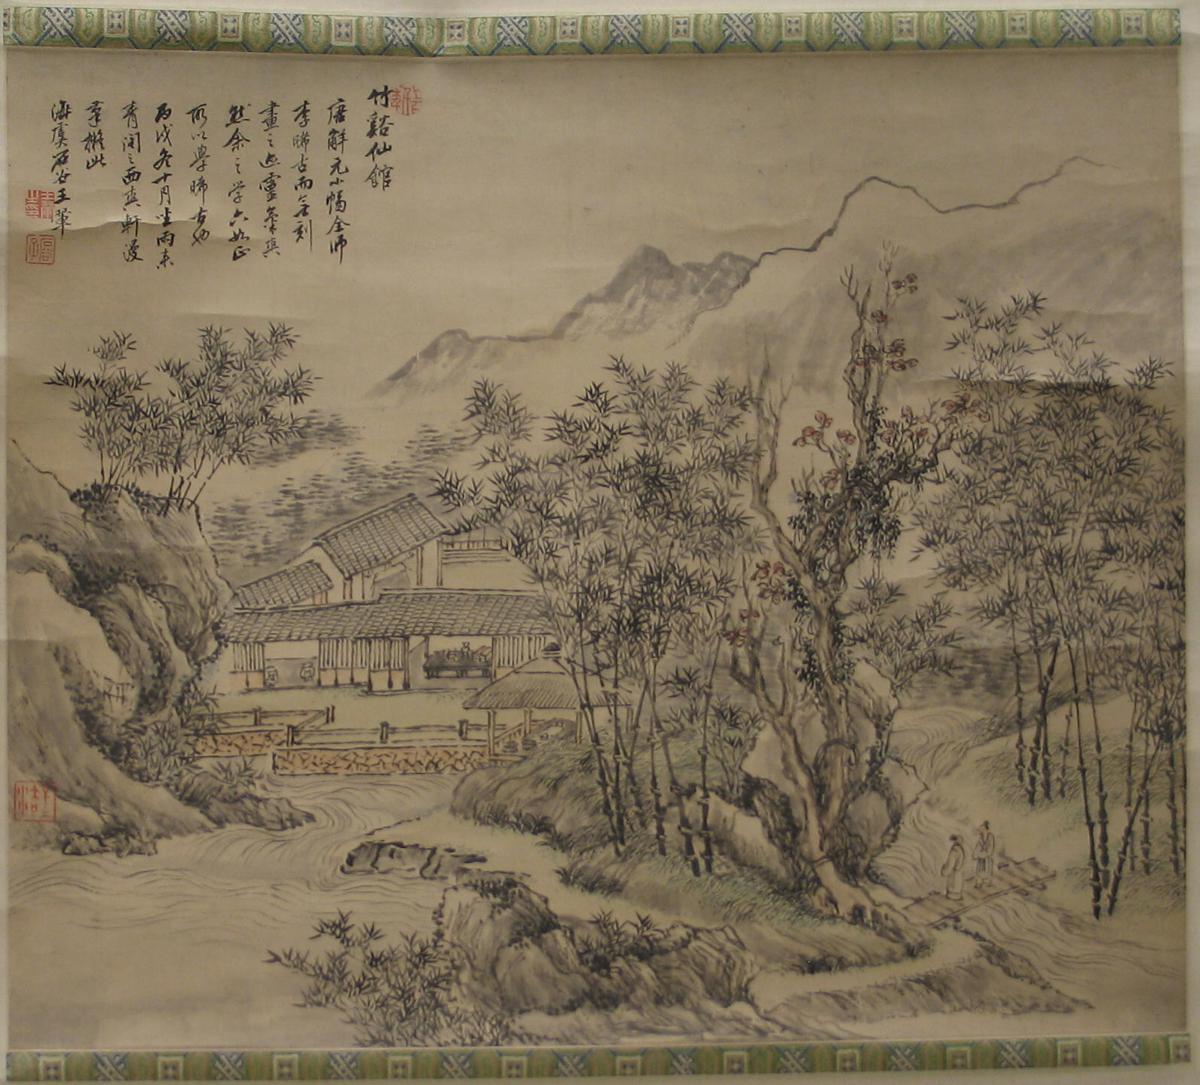 竹谿仙館
唐解元小幅全師
李晞古而無刻
畫之迹靈氣與
然余之学六如正
所以學晞古也
丙戌冬十月坐雨來
青閣之西爽軒漫
筆擬此
海虞石谷王翬